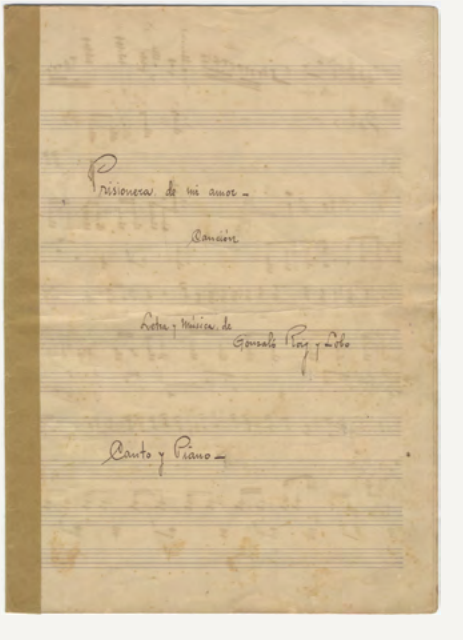 Prisionera de mi amor -
Canción
Letra y Música de
Gonzalo Roig y Lobo
Canto y Piano -